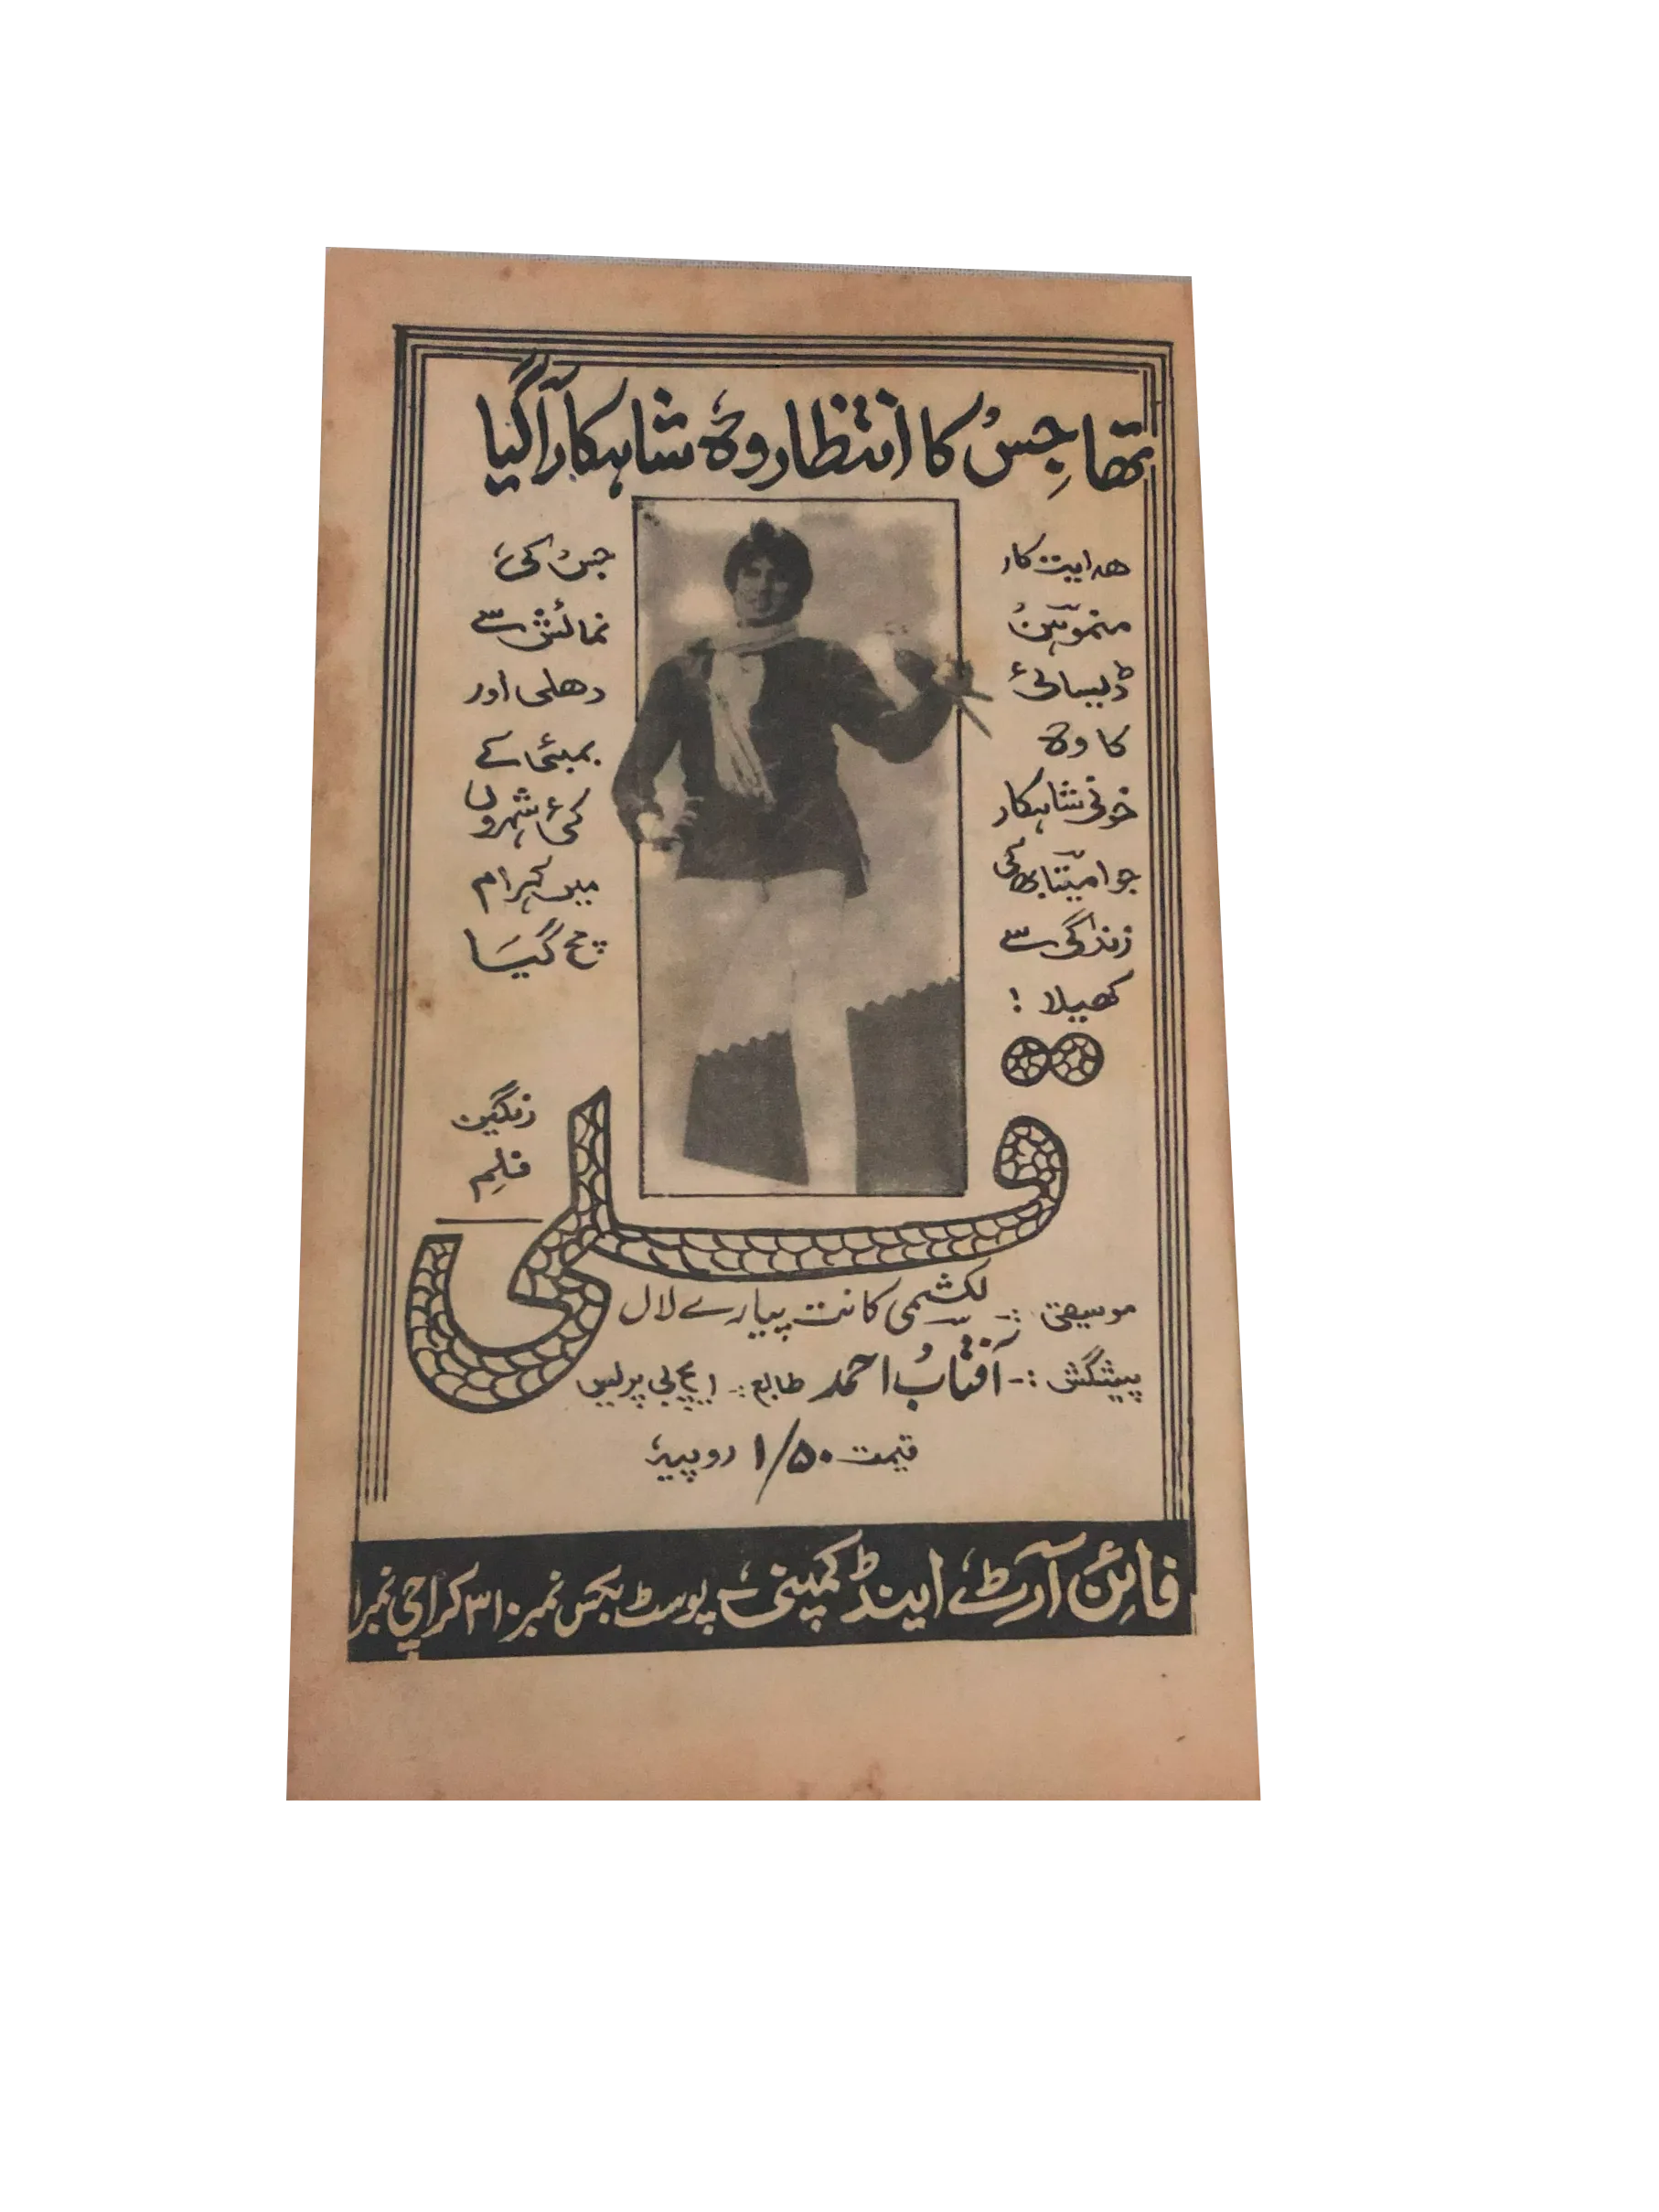 تھا جس کا انتظار وہ شاہکار آ گیا
ھدایت کار
منموہن
ڈیسائی
کا وہ
خونی شاہکار
جو امیتابھ کی
زندگی سے
کھیلا !
جس کی
نمائش سے
دھلی اور
بمبئی کے
کئی شہروں
میں کہرام
مچ گیا
قلی
رنگین
فلم
موسیقی :- لکشمی کانت پیارے لال
پیشکش :- آفتاب احمد طابع :- ایچ بی پریس
قیمت ۱/۵۰ روپیہ
فائن آرٹ اینڈ کمپنی پوسٹ بکس نمبر ۳۱۰ کراچی نمبر ۱